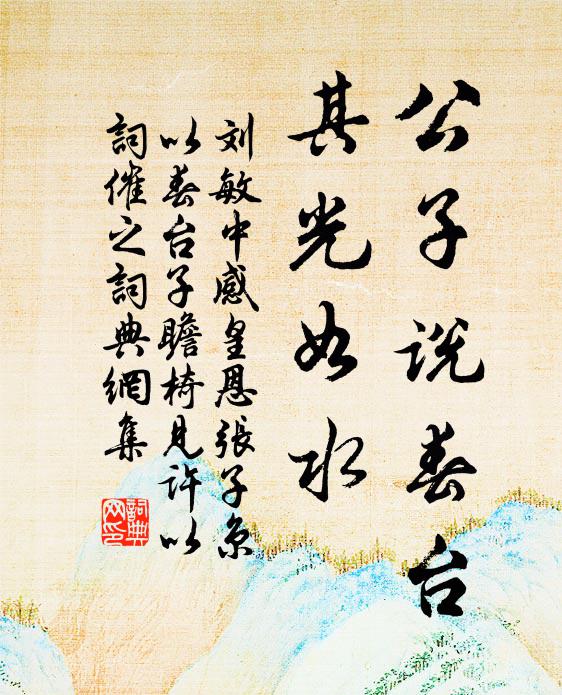 公子说春台
其光如水
刘敏中感皇恩張子京
以春台子瞻椅見许以
詞催之詞典網集
詞典
网印